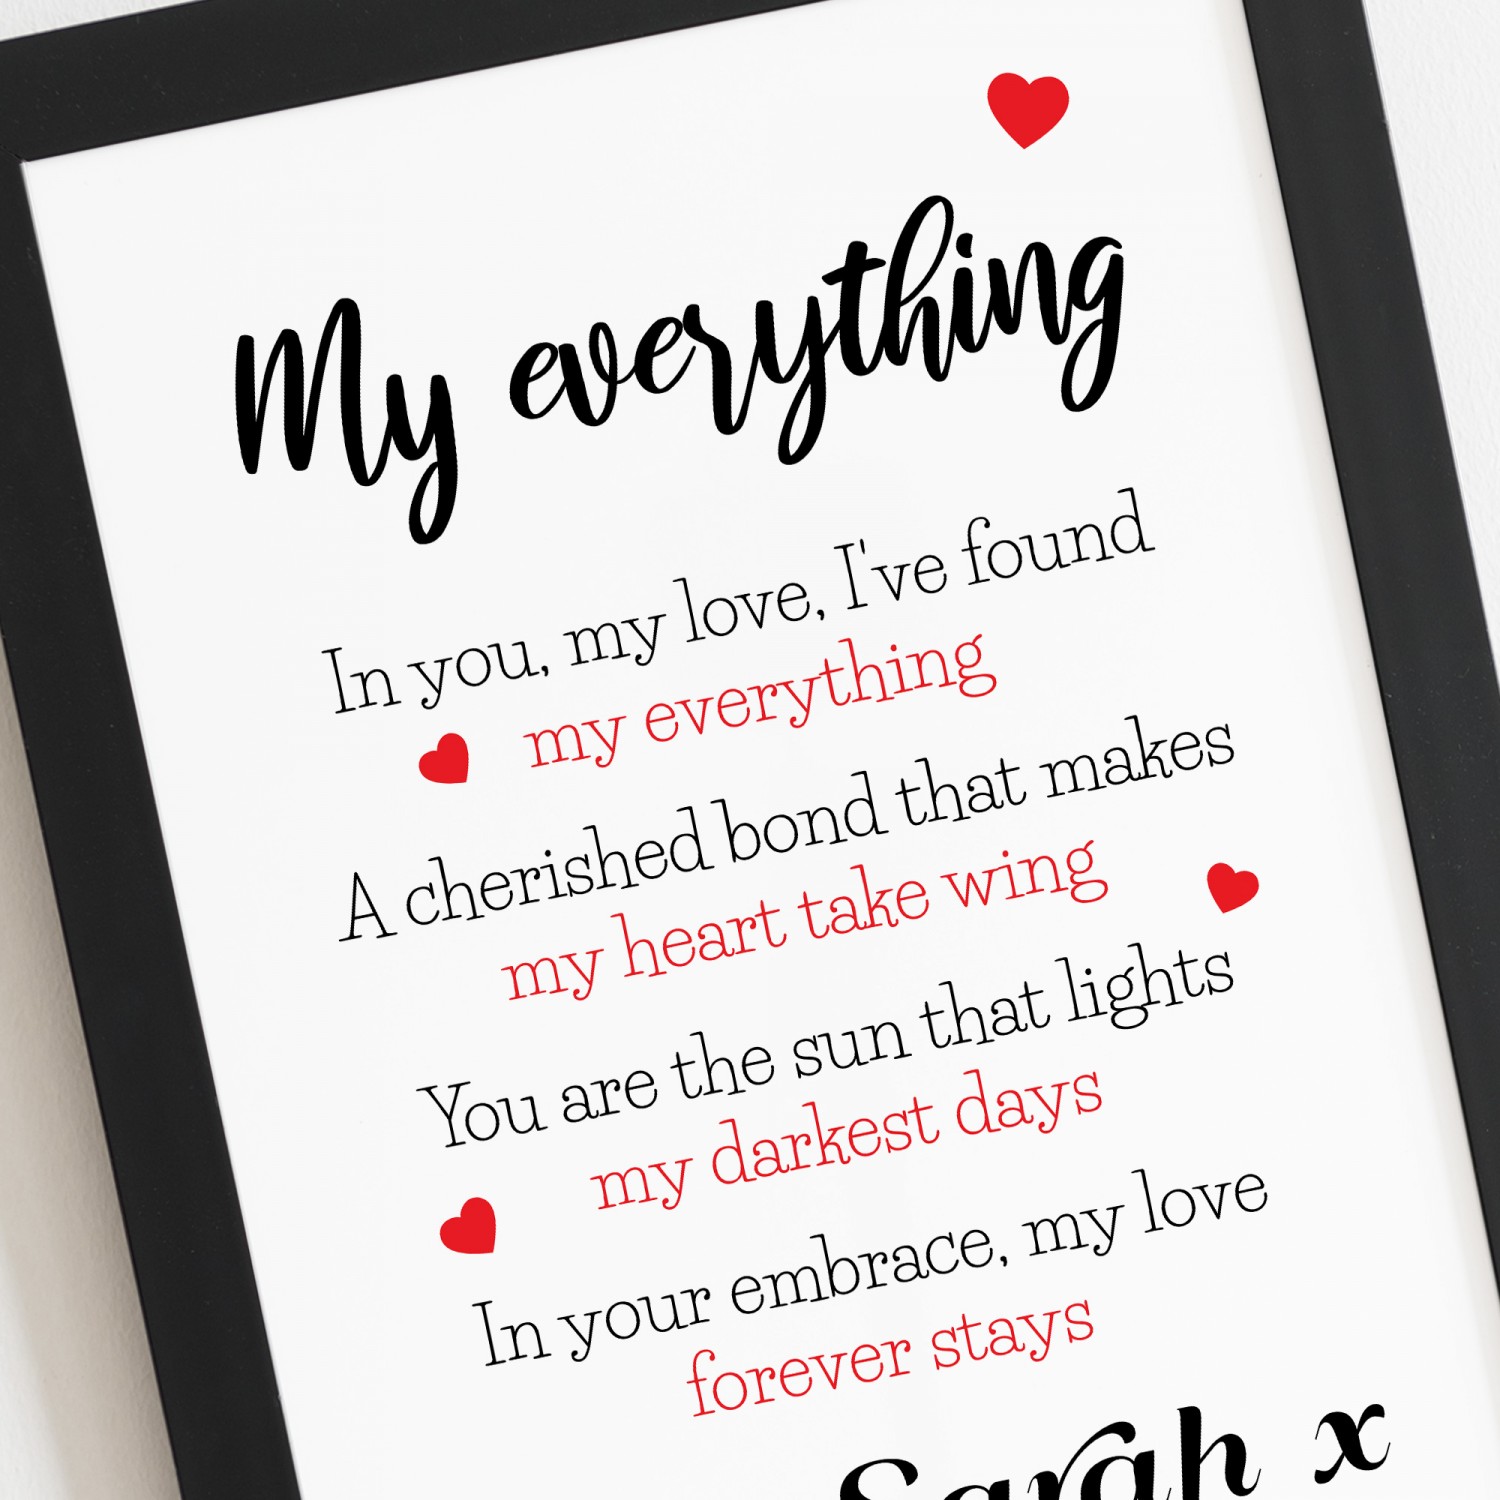 My everything
In you, my love, I've found
my everything
A cherished bond that makes
my heart take wing
You are the sun that lights
my darkest days
In your embrace, my love
forever stays
Sarah x